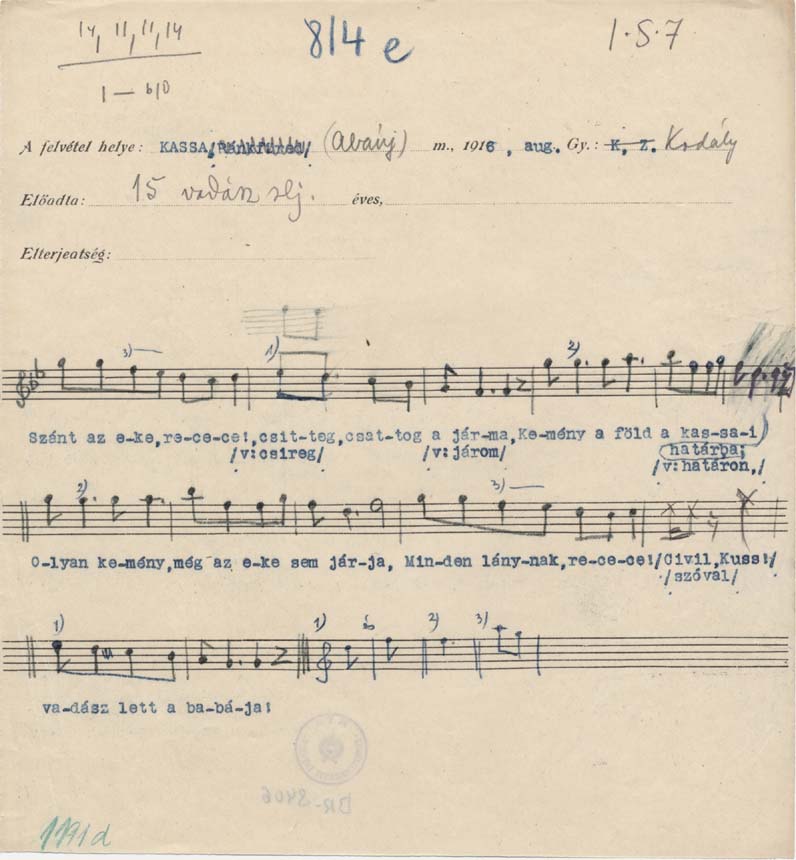 14, 11, 11, 14
8/4 e
1·5·7
1 — b10
A felvétel helye: KASSA, (Abaúj) m., 1916, aug. Gy.: K. Z. Kodály
Előadta: 15 vadász éves,
Elterjeatség:
3) 1) 2)
Szánt az e-ke,re-ce-ce!,csit-teg,csat-tog a jár-ma,Ke-mény a föld a kas-sa-i)
/v:csireg/ /v:járom/ határba;
/v:határon,/
2) 3)
O-lyan ke-mény,még az e-ke sem jár-ja, Min-den lány-nak,re-ce-ce!/Civil,Kuss!/
/szóval/
1) 1) és 2) 3)
va-dász lett a ba-bá-ja!
DR-3406
1191d